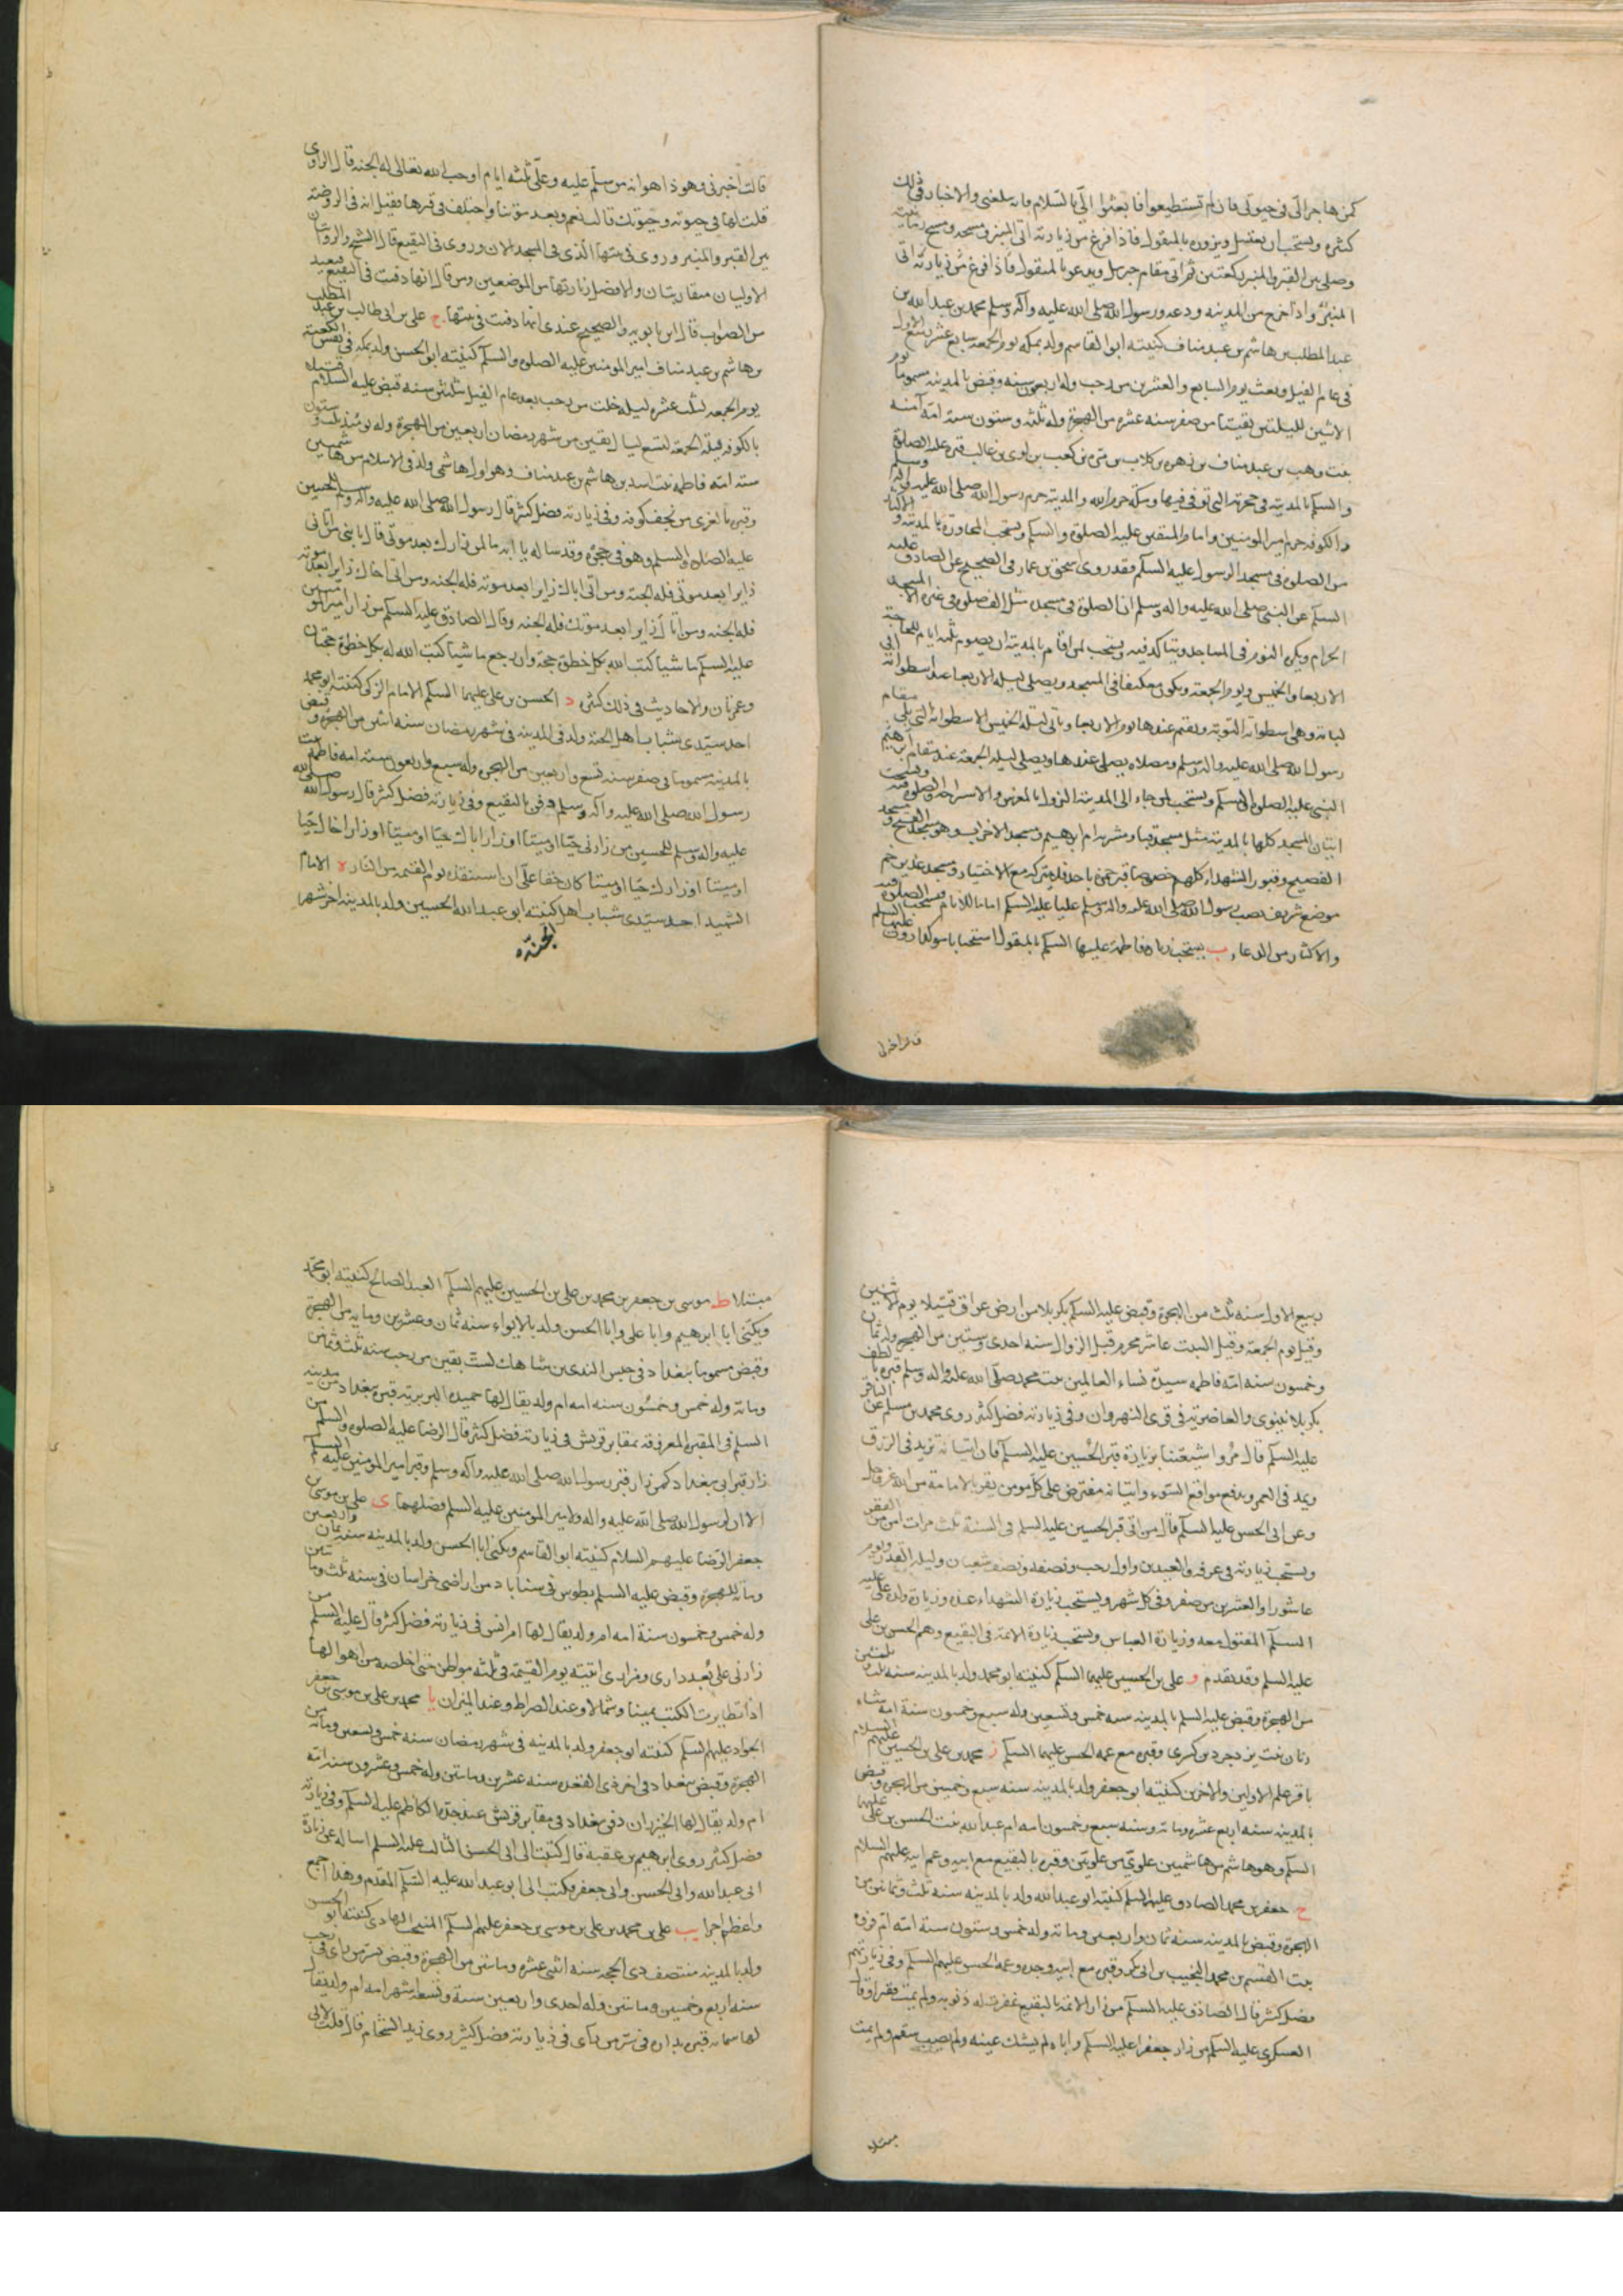 كمن هاجر الىّ فى حيوتى فان لم تستطيعوا فابعثوا الىّ بالسّلام فانه يبلغنى والاخبار فى ذلك
كثيره ويستحب ان يغتسل ويزوره بالمنقول فاذا فرغ من زيارته اتى المنبر ومسحه ومسح رمانتيه
وصلى بين القبر والمنبر ركعتين ثم اتى مقام جبرئيل ويدعو بالمنقول فاذا فرغ من زيارته اتى
المنبر واذا خرج من المدينه ودعه ورسول الله صلى الله عليه وآله وسلم محمد بن عبد الله بن
عبد المطلب بن هاشم بن عبد مناف كنيته ابو القاسم ولد بمكه يوم الجمعه سابع عشر ربيع الاول
فى عام الفيل وبعث يوم السابع والعشرين من رجب وله اربعون سنه وقبض بالمدينه مسموما يوم
الاثنين لليلتين بقيتا من صفر سنه عشره من الهجرة وله ثلثه وستون سنة امّه آمنه
بنت وهب بن عبد مناف بن زهره بن كلاب بن مره بن كعب بن لوى بن غالب قبره عليه الصلوة
والسلم بالمدينه فى حجرته التى توفى فيها ومكّه حرم الله والمدينه حرم رسول الله صلى الله عليه وآله وسلم
والكوفه حرم امير المومنين وامام المتقين عليه الصلوة والسلم ويستحب المجاورة بالمدينه والاكثار
من الصلوة فى مسجد الرسول عليه السلم فقد روى اسحق بن عمار فى الصحيح عن الصادق عليه
السلم عن النبى صلى الله عليه واله وسلم ان الصلوة فى مسجدى مثل الف صلوة فى غيره الا المسجد
الحرام ويكره النوم فى المساجد ويتاكد فيه ويستحب لمن اقام بالمدينة ان يصوم ثلثه ايام للحاجة
الاربعا والخميس ويوم الجمعة ويكون معتكفا فى المسجد ويصلى ليلة الاربعا عند اسطوانة ابى
لبابه وهى اسطوانة التوبة ويقيم عندها يوم الاربعا وياتى ليلة الخميس الاسطوانة التى يلى مقام
رسول الله صلى الله عليه واله وسلم ومصلاه يصلى عندها ويصلى ليلة الجمعة عند مقام
النبى عليه الصلوة والسلم ويستحب لمن جاء الى المدينة النزول بالمعرس والاستراحة والصلوة فيه ويستحب
اتيان المسجد كلها بالمدينه مثل مسجد قبا ومشربه ام ابرهيم ومسجد الاحزاب وهو مسجد الفتح ومسجد
الفضيخ وقبور الشهداء كلهم خصوصا قبر حمزة باحد فلا يتركه مع الاختيار ومسجد غدير خم
موضع شريف نصب رسول الله صلى الله عليه واله وسلم عليا عليه السلم اماما للانام يستحب الصلوة فيه
والاكثار من الدعاء ب يستحب زيارة فاطمة عليها السلم بالمنقول استحبابا موكدا روى
قالت اخبرنى وهو ذا هو انه من سلّم عليه وعلىّ ثلثه ايام اوجب الله تعالى له الجنه قال الراوى
قلت لها فى حيوته وحيوتك قالت نعم وبعد موتنا واختلف فى قبرها فقيل انه فى الروضه
بين القبر والمنبر وروى فى بيتها الذى فى المسجد الان وروى فى البقيع قال الشيخ والروايتان
الاوليان متقاربتان والافضل زيارتها من الموضعين ومن قال انها دفنت فى البقيع فبعيد
من الصواب قال ابن بابويه والصحيح عندى انها دفنت فى بيتها ج على بن ابى طالب بن عبد المطلب
بن هاشم بن عبد مناف امير المومنين عليه الصلوة والسلم كنيته ابو الحسن ولد بمكه فى نفس الكعبة
يوم الجمعه لثلث عشره ليله خلت من رجب بعد عام الفيل بثلثين سنه قبض عليه السلام قتيلا
بالكوفه ليلة الجمعة لتسع ليال بقين من شهر رمضان اربعين من الهجرة وله يومئذ ثلث وستون
سنة امه فاطمه بنت اسد بن هاشم بن عبد مناف وهو اول هاشمى ولد فى الاسلام من هاشميين
وقبره بالغرى من نجف كوفه وفى زيارته فضل كثير قال رسول الله صلى الله عليه واله وسلم للحسين
عليه الصلوة والسلم وهو فى حجره وقد ساله يا ابه ما لمن زارك بعد موتى قال يا بنى من اتانى
زايرا بعد موتى فله الجنة ومن اتى اباك زايرا بعد موته فله الجنه ومن اتى اخاك زايرا بعد موته
فله الجنه ومن اتاك زايرا بعد موتك فله الجنه وقال الصادق عليه السلم من زار امير المومنين
عليه السلم ماشيا كتب الله بكل خطوة حجة وان رجع ماشيا كتب الله له بكل خطوة حجتان
وعمرتان والاحاديث فى ذلك كثيره د الحسن بن على عليهما السلم الامام الزكى كنيته ابو محمد
احد سيّدى شباب اهل الجنة ولد فى المدينه فى شهر رمضان سنه اثنين من الهجرة وقبض
بالمدينه مسموما فى صفر سنه تسع واربعين من الهجره وله سبع واربعون سنة امه فاطمة بنت
رسول الله صلى الله عليه وآله وسلم دفن بالبقيع وفى زيارته فضل كثير قال رسول الله صلى الله
عليه واله وسلم للحسين من زارنى حيّا او ميتا او زار اباك حيّا او ميتا او زار اخاك حيّا
او ميتا او زارك حيّا او ميتا كان حقا علىّ ان استنقذه يوم القيمه من النار ه الامام
الشهيد احد سيّدى شباب اهل كنيته ابو عبد الله الحسين ولد بالمدينه اخر شهر
الجنّة
ربيع الاول سنه ثلث من الهجرة وقبض عليه السلم بكربلا من ارض عراق قتيلا يوم الاثنين
وقيل يوم الجمعة وقيل السبت عاشر محرم قبل الزوال سنه احدى وستين من الهجره وله ثمان
وخمسون سنه امّه فاطمه سيدة نساء العالمين بنت محمد صلى الله عليه واله وسلم قبره بالطف
بكربلا بنينوى والغاضرية فى قرى النهروان وفى زيارته فضل كثير روى محمد بن مسلم عن الباقر
عليه السلم قال مُروا شيعتنا بزيارة قبر الحُسين عليه السلم فان اتيانه تزيد فى الرزق
ويمد فى العمر ويدفع مواقع السّوء واتيانه مفترض على كلّ مومن يقر بالامامة من الله عز وجل
وعن ابى الحسن عليه السلم قال من اتى قبر الحسين عليه السلم فى السنة ثلث مرات امن من الفقر
ويستحب زيارته فى عرفه والعيدين واول رجب ونصفه ونصف شعبان وليلة القدر ويوم
عاشورا والعشرين من صفر وفى كل شهر ويستحب زيارة الشهداء عنده وزيارة ولده على عليه
السلم المقتول معه وزيارة العباس ويستحب زيارة الائمة فى البقيع وهم الحسن بن على
عليه السلم وقد تقدم و على بن الحسين عليهما السلم كنيته ابو محمد ولد بالمدينه سنه ثلث وثلثين
من الهجرة وقبض عليه السلم بالمدينه سنه خمس وتسعين وله سبع وخمسون سنة امه شاه
زنان بنت يزدجرد بن كسرى وقبره مع عمه الحسن عليهما السلم ز محمد بن على بن الحسين عليهم السلام
باقر علم الاولين والاخرين كنيته ابو جعفر ولد بالمدينه سنه سبع وخمسين من الهجرة وقبض
بالمدينه سنه اربع عشره ومائه وسنه سبع وخمسون امه ام عبد الله بنت الحسن بن على عليهما
السلم وهو هاشمى من هاشميين علوىّ من علويّين وقبره بالبقيع مع ابيه وعم ابيه عليهم السلام
ح جعفر بن محمد الصادق عليهما السلم كنيته ابو عبد الله ولد بالمدينه سنه ثلث وثمانون من
الهجرة وقبض بالمدينه سنه ثمان واربعين ومائه وله خمس وستون سنة امّه ام فروه
بنت القسم بن محمد النجيب بن ابى بكر وقبره مع ابيه وجده وعمه الحسن عليهم السلم وفى زيارتهم
فضل كثير قال الصادق عليه السلم من زار الائمة بالبقيع غفرت له ذنوبه ولم يمت فقيرا وقال
العسكرى عليه السلم من زار جعفرا عليه السلم واباه لم يشك عينه ولم يصبه سقم ولم يمت
مبتلا
مبتلا ط موسى بن جعفر بن محمد بن على بن الحسين عليهم السلم العبد الصالح كنيته ابو محمّد
ويكنى ابا ابرهيم وابا على وابا الحسن ولد بالابواء سنه ثمان وعشرين ومايه من الهجرة
وقبض مسموما ببغداد فى حبس السندى بن شاهك لست بقين من رجب سنه ثلث وثمانين
ومائة وله خمس وخمسون سنه امه ام ولد يقال لها حميده البربرية قبره ببغداد من مدينه
السلم فى المقبرة المعروفه بمقابر قريش فى زيارته فضل كثير قال الرضا عليه الصلوه والسلم من
زار قبر ابى ببغداد كمن زار قبر رسول الله صلى الله عليه وآله وسلم وقبر امير المومنين عليه السلم
الا ان لرسول الله صلى الله عليه واله ولامير المومنين عليه السلم فضلهما ى على بن موسى بن
جعفر الرّضا عليهم السلام كنيته ابو القاسم ويكنى ابا الحسن ولد بالمدينه سنه ثمان واربعين
ومائه للهجرة وقبض عليه السلم بطوس فى سناباد من اراضى خراسان فى سنه ثلث ومائتين
وله خمس وخمسون سنة امه ام ولد يقال لها ام انس فى زيارته فضل كثير قال عليه السلم من
زارنى على بُعد دارى ومزارى اتيته يوم القيمة فى ثلثه مواطن حتى اخلصه من اهوالها
اذا تطايرت الكتب يمينا وشمالا وعند الصراط وعند الميزان يا محمد بن على بن موسى بن جعفر
الجواد عليهم السلم كنيته ابو جعفر ولد بالمدينه فى شهر رمضان سنه خمس وتسعين ومائه من
الهجرة وقبض ببغداد فى اخر ذى القعده سنه عشرين ومائتين وله خمس وعشرون سنه امّه
ام ولد يقال لها الخيزران دفن ببغداد فى مقابر قريش عند جدّه الكاظم عليه السلم وفى زيارته
فضل كثير روى ابرهيم بن عقبه قال كتبت الى ابى الحسن الثالث عليه السلم اساله عن زيارة
ابى عبد الله وابى الحسن وابى جعفر فكتب الى ابو عبد الله عليه السّلم المقدّم وهذا اجمع
واعظم اجرا يب على بن محمد بن على بن موسى بن جعفر عليهم السلم المنتجب الهادى كنيته ابو الحسن
ولد بالمدينه منتصف ذى الحجه سنه اثنتى عشره ومائتين من الهجرة وقبض بسرّ من راى فى رجب
سنه اربع وخمسين ومائتين وله احدى واربعين سنة وتسعة اشهر امه ام ولد يقال
لها سمانه قبره بداره فى سرّ من رآى فى زيارته فضل كثير روى زيد الشحّام قال قلت لابى